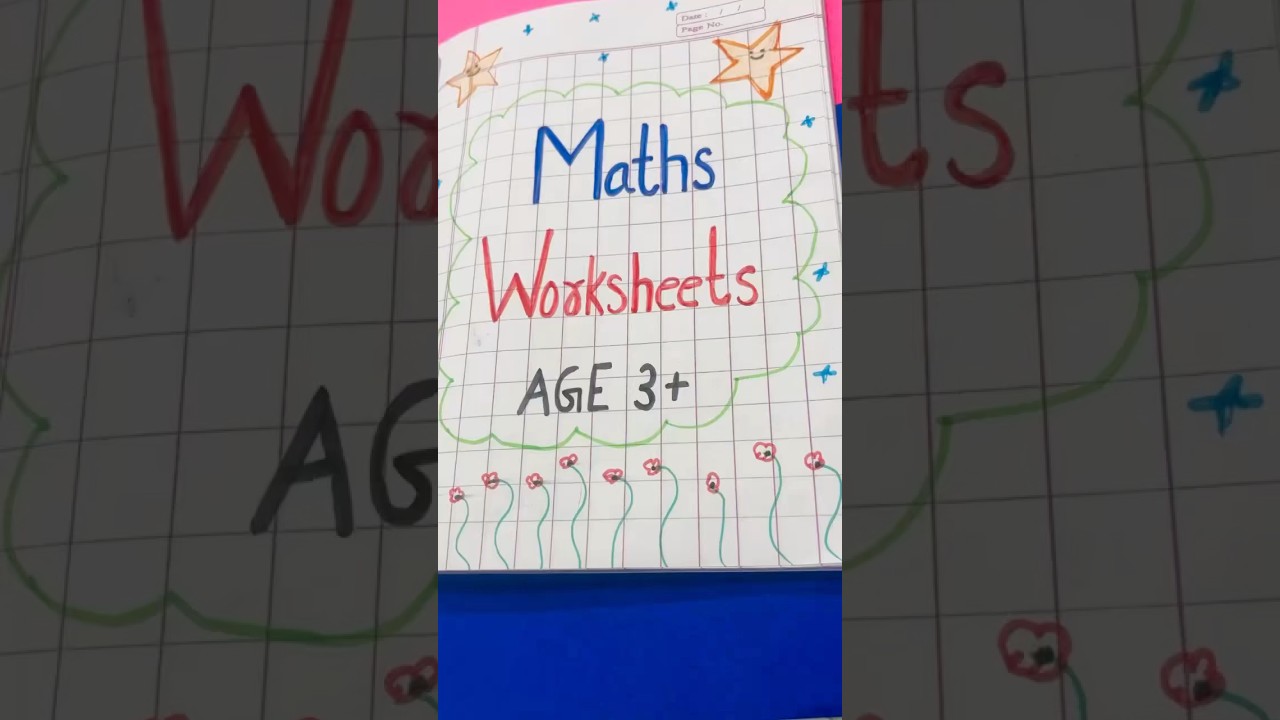 Date : / /
Page No.
Maths
Worksheets
AGE 3+